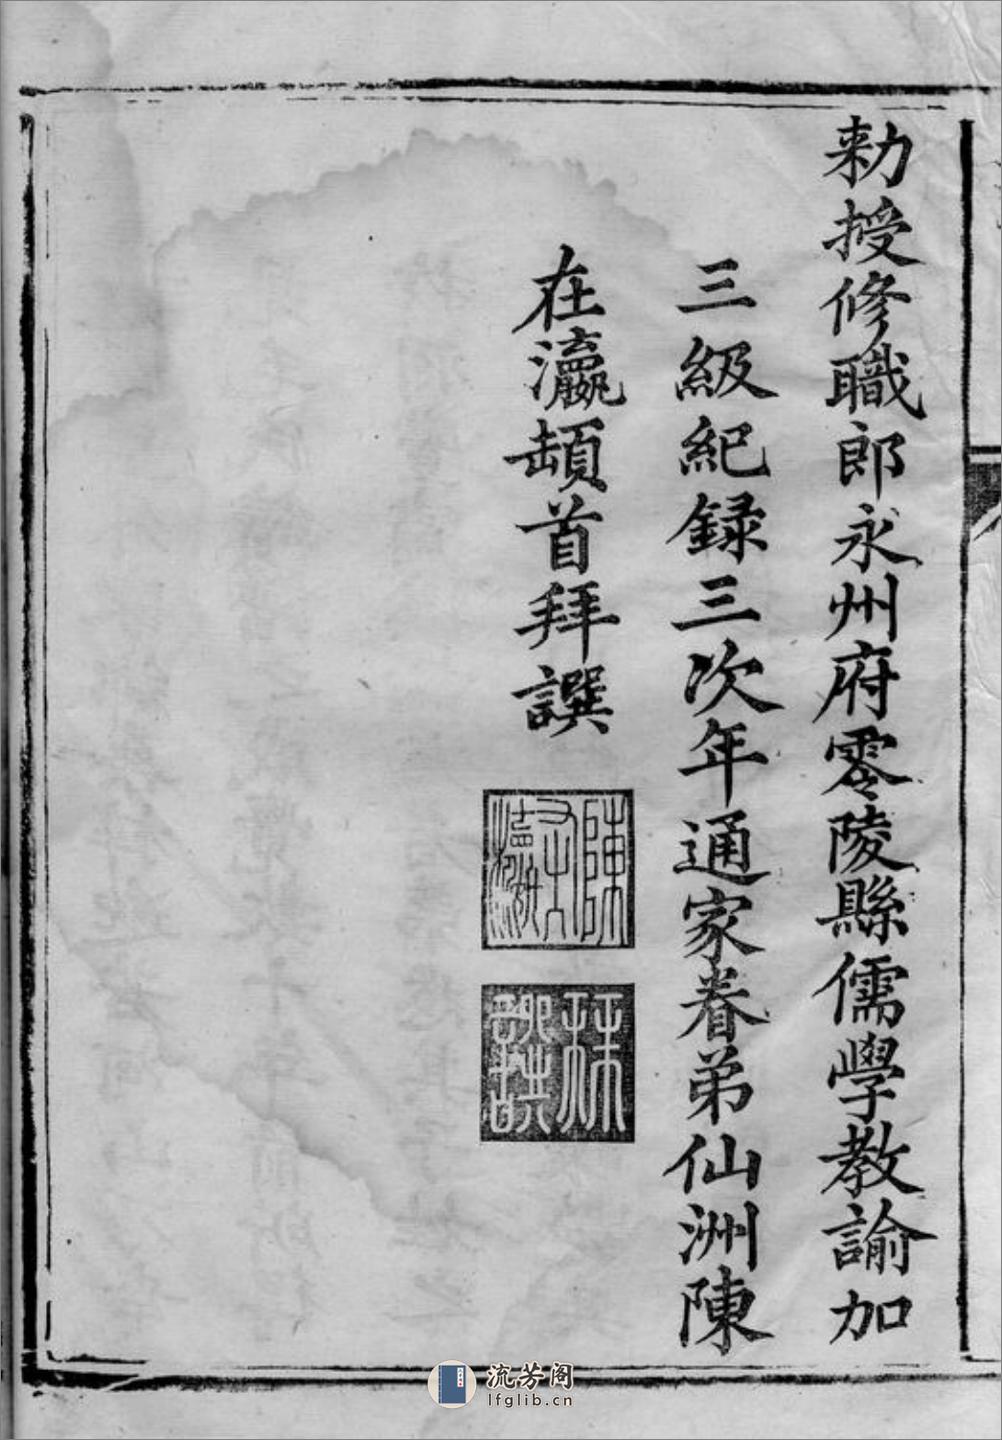 勅授修職郎永州府零陵縣儒學教諭加
三級紀録三次年通家眷弟仙洲陳
在瀛頓首拜譔
陳在瀛
流芳阁
lfglib.cn